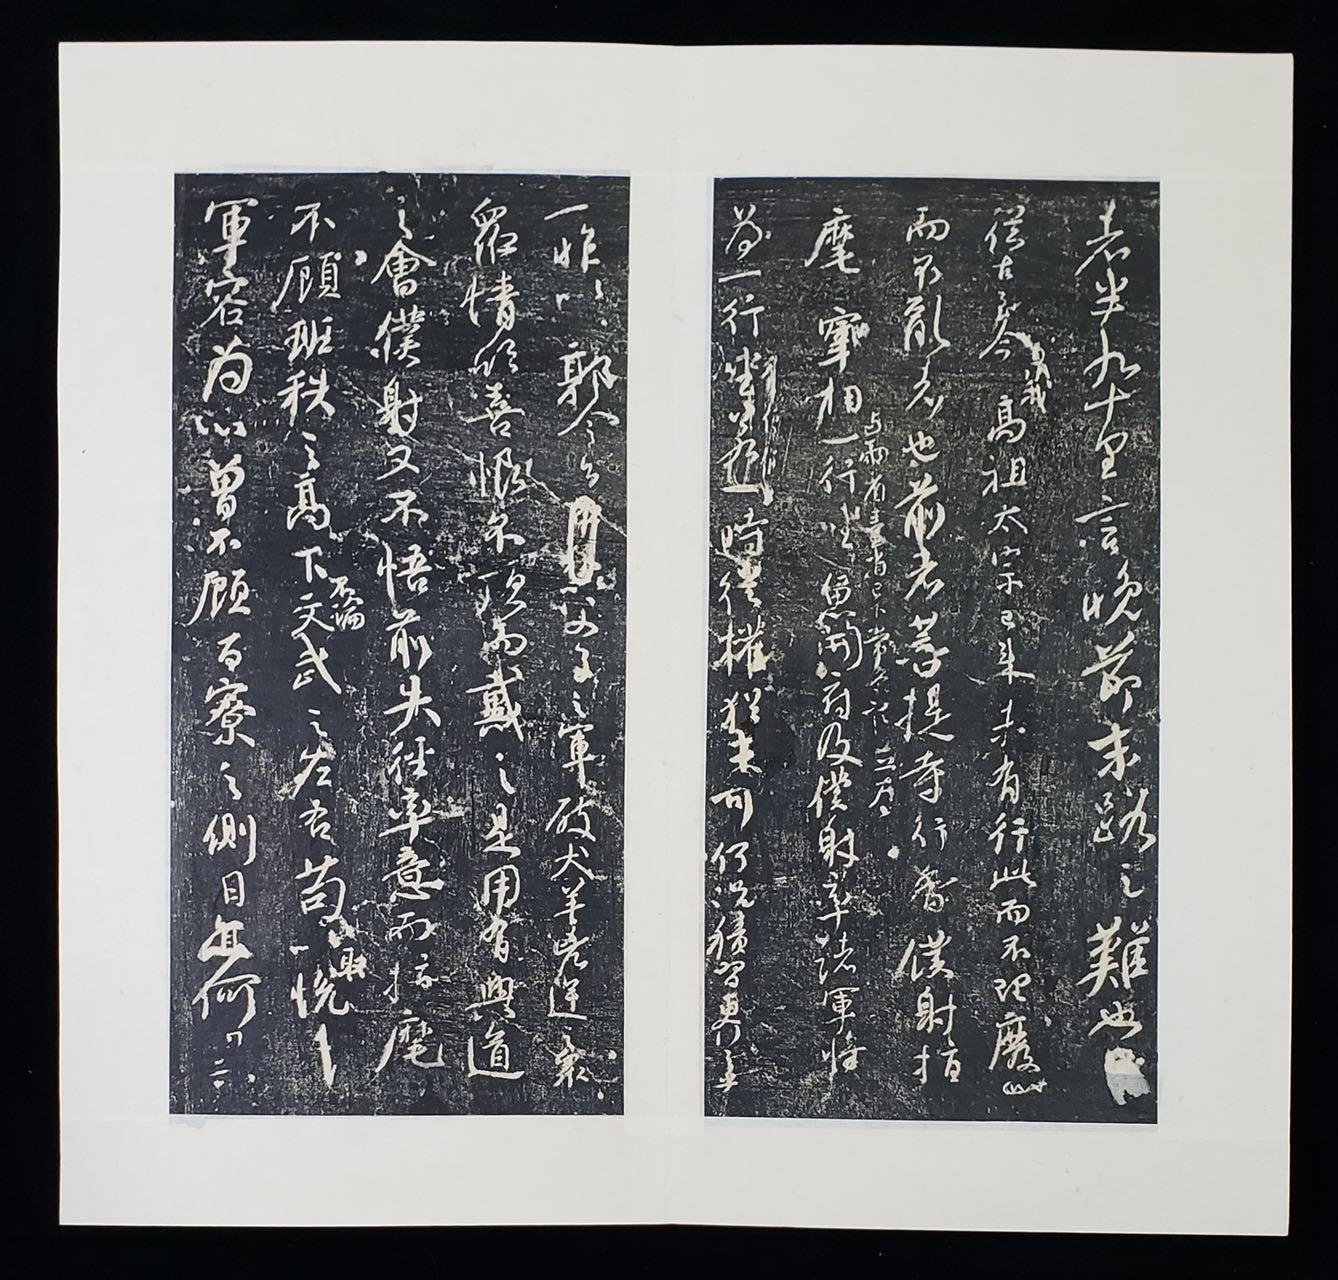 者半九十里言晚節末路之難也
從古至今洎我高祖太宗已來未有行此而不理廢此
而不亂者也前者菩提寺行香僕射指
麾宰相与兩省臺省已下常參官並為一行坐魚開府及僕射率諸軍將
為一行坐若一時從權猶未可何況積習更行之
一昨以郭令公以父子之軍破犬羊凶逆之衆
衆情欣喜恨不頂而戴之是用有興道
之會僕射又不悟前失徑率意而指麾
不顧班秩之高下不論文武之左右苟以取悅
軍容為心曾不顧百寮之側目亦何